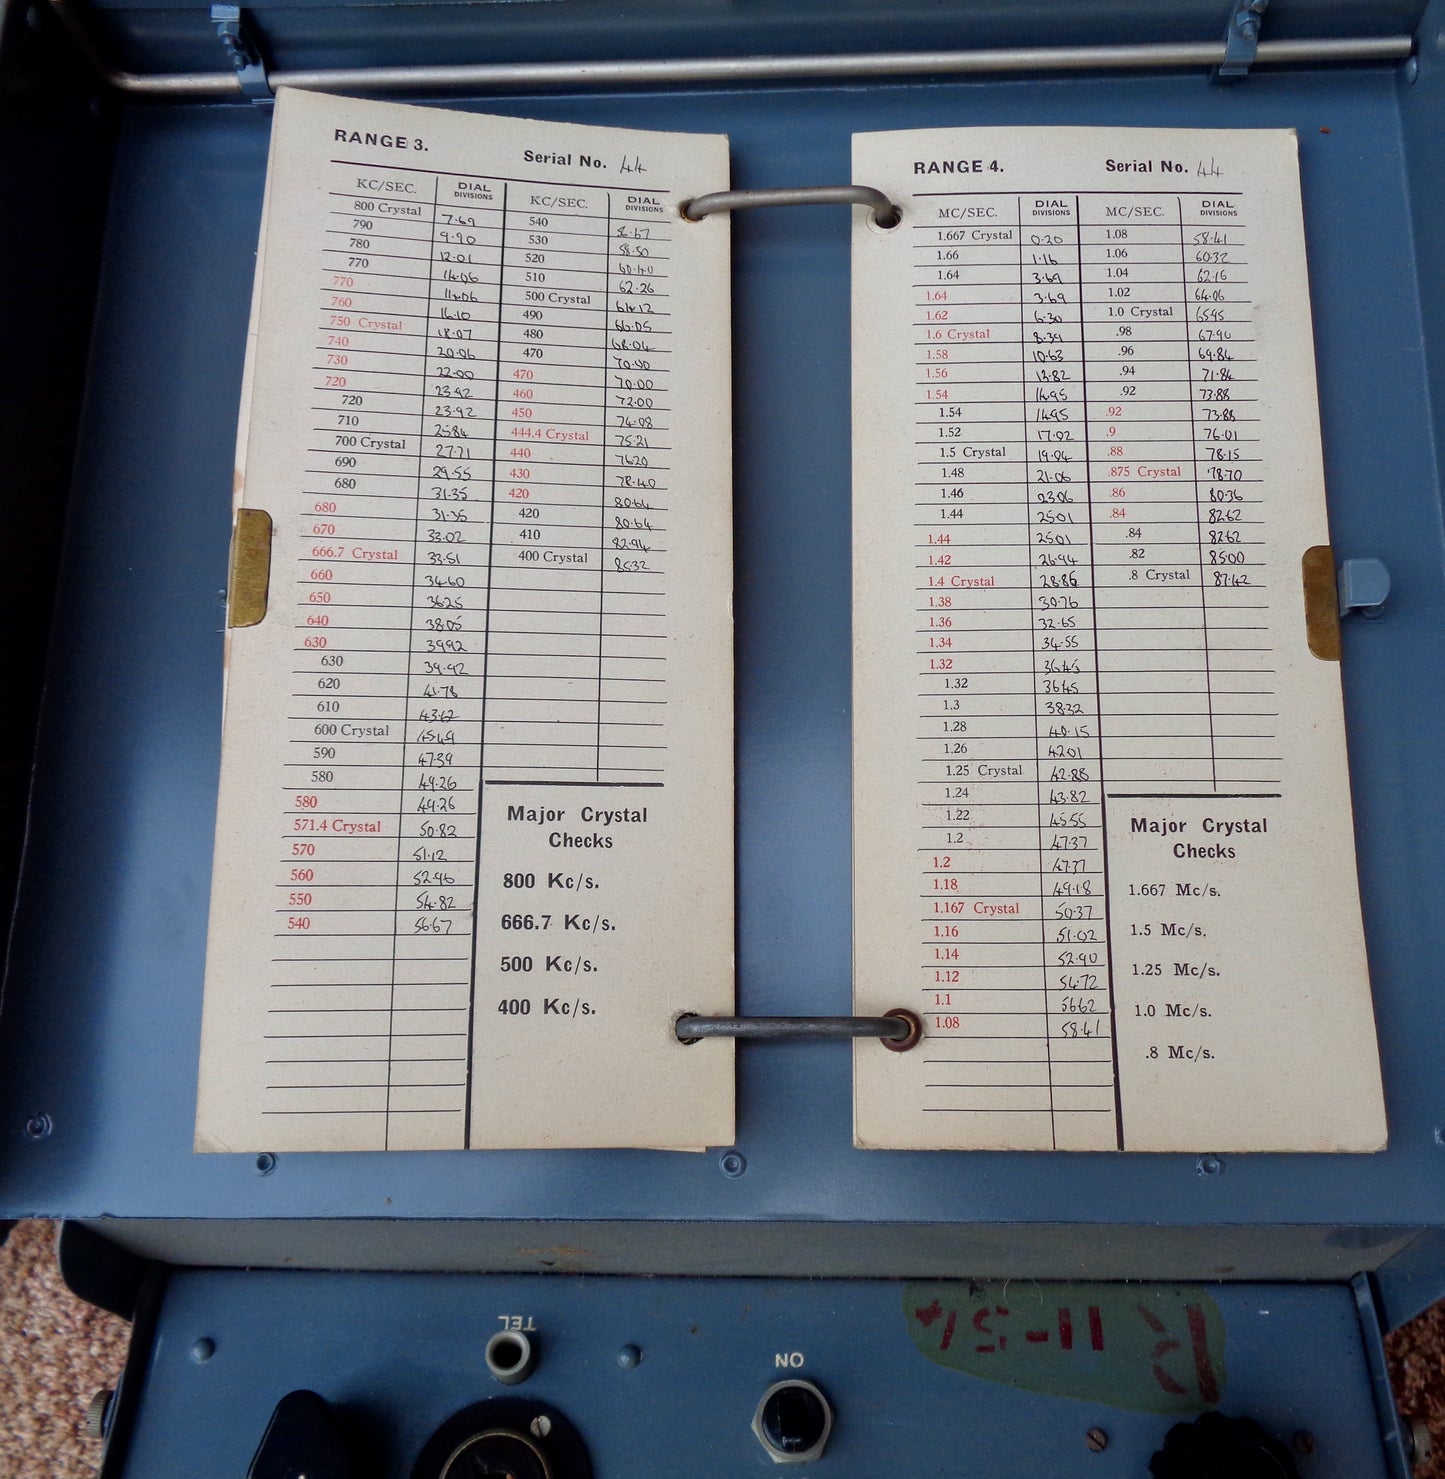 RANGE 3.
Serial No. 44
KC/SEC. DIAL DIVISIONS
800 Crystal 7.69
790 9.90
780 12.01
770 14.06
770 14.06
760 16.10
750 Crystal 18.07
740 20.06
730 22.00
720 23.92
720 23.92
710 25.84
700 Crystal 27.71
690 29.55
680 31.35
680 31.35
670 33.02
666.7 Crystal 33.51
660 34.60
650 36.25
640 38.05
630 39.92
630 39.92
620 41.78
610 43.62
600 Crystal 45.49
590 47.39
580 49.26
580 49.26
571.4 Crystal 50.82
570 51.12
560 52.96
550 54.82
540 56.67
KC/SEC. DIAL DIVISIONS
540 56.67
530 58.50
520 60.40
510 62.26
500 Crystal 64.12
490 66.05
480 68.04
470 70.00
470 70.00
460 72.00
450 74.08
444.4 Crystal 75.21
440 76.20
430 78.40
420 80.64
420 80.64
410 82.94
400 Crystal 85.32
Major Crystal
Checks
800 Kc/s.
666.7 Kc/s.
500 Kc/s.
400 Kc/s.
RANGE 4.
Serial No. 44
MC/SEC. DIAL DIVISIONS
1.667 Crystal 0.20
1.66 1.16
1.64 3.69
1.64 3.69
1.62 6.30
1.6 Crystal 8.39
1.58 10.63
1.56 12.82
1.54 14.95
1.54 14.95
1.52 17.02
1.5 Crystal 19.04
1.48 21.06
1.46 23.06
1.44 25.01
1.44 25.01
1.42 26.94
1.4 Crystal 28.86
1.38 30.76
1.36 32.65
1.34 34.55
1.32 36.45
1.32 36.45
1.3 38.32
1.28 40.15
1.26 42.01
1.25 Crystal 42.88
1.24 43.82
1.22 45.55
1.2 47.37
1.2 47.37
1.18 49.18
1.167 Crystal 50.37
1.16 51.02
1.14 52.90
1.12 54.72
1.1 56.62
1.08 58.41
MC/SEC. DIAL DIVISIONS
1.08 58.41
1.06 60.32
1.04 62.16
1.02 64.06
1.0 Crystal 65.95
.98 67.90
.96 69.84
.94 71.84
.92 73.88
.92 73.88
.9 76.01
.88 78.15
.875 Crystal 78.70
.86 80.36
.84 82.62
.84 82.62
.82 85.00
.8 Crystal 87.42
Major Crystal
Checks
1.667 Mc/s.
1.5 Mc/s.
1.25 Mc/s.
1.0 Mc/s.
.8 Mc/s.
TEL
ON
R 11-54